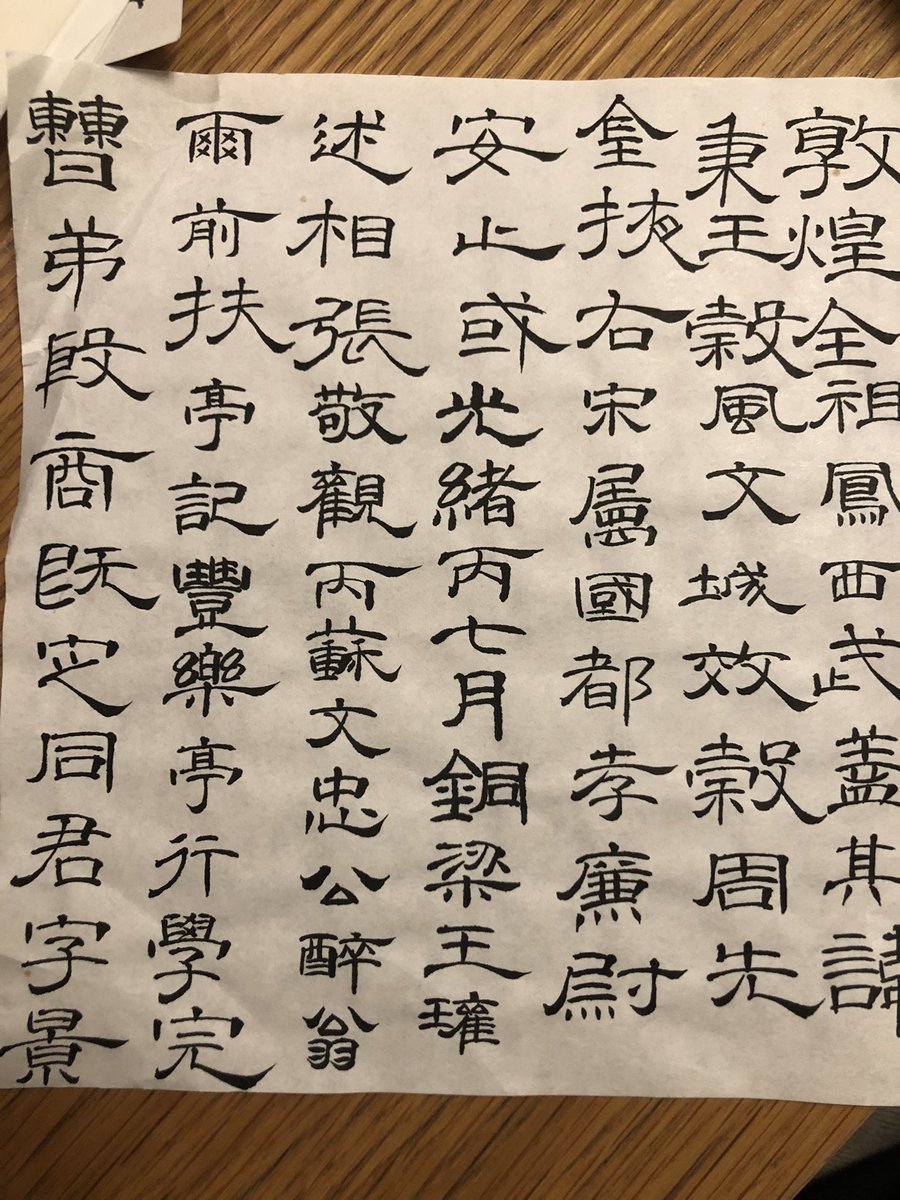 敦煌全祖鳳西武蓋其諱
秉王穀風文城效穀周先
金挾右宋屬國都孝廉尉
安止或光緒丙七月銅梁王瓘
述相張敬觀丙蘇文忠公醉翁
爾前扶亭記豐樂亭行學完
曹弟殷商既定同君字景